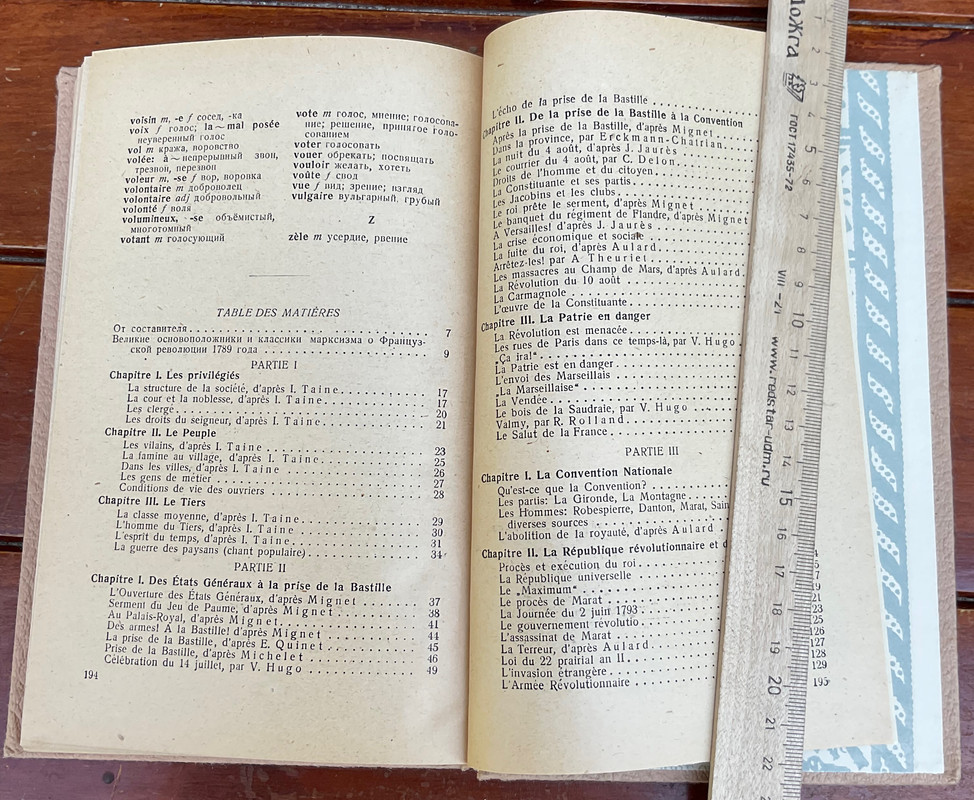 voisin m, -e f сосед, -ка
voix f голос; la ~ mal posée
неуверенный голос
vol m кража, воровство
volée: à ~ непрерывный звон,
трезвон, перезвон
voleur m, -se f вор, воровка
volontaire m доброволец
volontaire adj добровольный
volonté f воля
volumineux, -se объёмистый,
многотомный
votant m голосующий
vote m голос, мнение; голосова-
ние; решение, принятое голо-
сованием
voter голосовать
vouer обрекать; посвящать
vouloir желать, хотеть
voûte f свод
vue f вид; зрение; взгляд
vulgaire вульгарный, грубый
Z
zèle m усердие, рвение
TABLE DES MATIÈRES
От составителя 7
Великие основоположники и классики марксизма о Француз-
ской революции 1789 года 9
PARTIE I
Chapitre I. Les privilégiés
La structure de la société, d'après I. Taine 17
La cour et la noblesse, d'après I. Taine 17
Les clergé 20
Les droits du seigneur, d'après I. Taine 21
Chapitre II. Le Peuple
Les vilains, d'après I. Taine 23
La famine au village, d'après I. Taine 25
Dans les villes, d'après I. Taine 26
Les gens de métier 27
Conditions de vie des ouvriers 28
Chapitre III. Le Tiers
La classe moyenne, d'après I. Taine 29
L'homme du Tiers, d'après I. Taine 30
L'esprit du temps, d'après I. Taine 31
La guerre des paysans (chant populaire) 34
PARTIE II
Chapitre I. Des États Généraux à la prise de la Bastille
L'Ouverture des États Généraux, d'après Mignet 37
Serment du Jeu de Paume, d'après Mignet 38
Au Palais-Royal, d'après Mignet 41
Des armes! À la Bastille! d'après Mignet 44
La prise de la Bastille, d'après E. Quinet 45
Prise de la Bastille, d'après Michelet 46
Célébration du 14 juillet, par V. Hugo 49
194
L'écho de la prise de la Bastille
Chapitre II. De la prise de la Bastille à la Convention
Après la prise de la Bastille, d'après Mignet
Dans la province, par Erckmann-Chatrian
La nuit du 4 août, d'après J. Jaurès
Le courrier du 4 août, par C. Delon
Droits de l'homme et du citoyen
La Constituante et ses partis
Les Jacobins et les clubs
Le roi prête le serment, d'après Mignet
Le banquet du régiment de Flandre, d'après Mignet
A Versailles! d'après J. Jaurès
La crise économique et sociale
La fuite du roi, d'après Aulard
Arrêtez-les! par A Theuriet
Les massacres au Champ de Mars, d'après Aulard
La Révolution du 10 août
La Carmagnole
L'œuvre de la Constituante
Chapitre III. La Patrie en danger
La Révolution est menacée
Les rues de Paris dans ce temps-là, par V. Hugo
„Ça ira!“
La Patrie est en danger
L'envoi des Marseillais
„La Marseillaise“
La Vendée
Le bois de la Saudraie, par V. Hugo
Valmy, par R. Rolland
Le Salut de la France
PARTIE III
Chapitre I. La Convention Nationale
Qu'est-ce que la Convention?
Les partis: La Gironde, La Montagne
Les Hommes: Robespierre, Danton, Marat, Sain
diverses sources
L'abolition de la royauté, d'après Aulard
Chapitre II. La République révolutionnaire et d
Procès et exécution du roi
La République universelle
Le „Maximum“
Le procès de Marat
La Journée du 2 juin 1793
Le gouvernement révolutio
L'assassinat de Marat
La Terreur, d'après Aulard
Loi du 22 prairial an II
L'invasion étrangère
L'Armée Révolutionnaire
19
21
23
25
126
127
128
129
195
ГОСТ 17435-72
VIII - 21
www.redstar-udm.ru
2
3
4
5
6
7
8
9
10
11
12
13
14
15
16
17
18
19
20
21
22